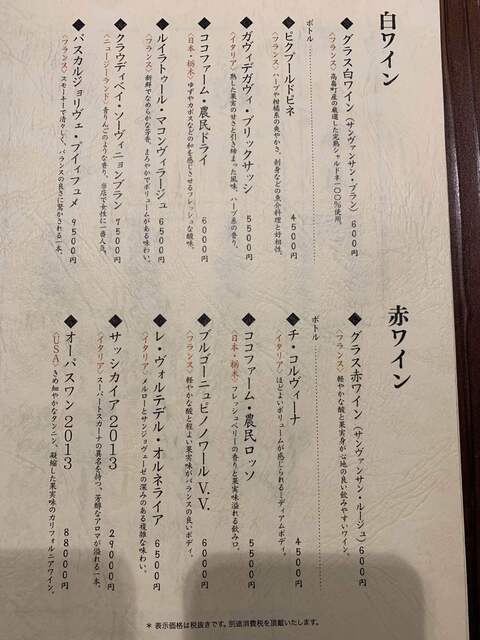 白ワイン
◆グラス白ワイン（サンヴァンサン・ブラン）600円
〈フランス〉高畠町産の厳選した完熟シャルドネ一〇〇％使用。
ボトル
◆ピクプールドピネ 4500円
〈フランス〉ハーブや柑橘系の爽やかさ。刺身などの魚介料理と好相性。
◆ガヴィデガヴィ・ブリックサッシ 5500円
〈イタリア〉熟した果実の甘さと引き締まった風味。ハーブ系の香り。
◆ココファーム・農民ドライ 6000円
〈日本・栃木〉ゆずやカボスなどの和を感じさせるフレッシュな酸味。
◆ルイラトゥール・マコンヴィラージュ 6500円
〈フランス〉新鮮でなめらかな芳香。まろやかでボリュームがある味わい。
◆クラウディベイ・ソーヴィニョンブラン 7500円
〈ニュージーランド〉青りんごのような香り。当店で女性に一番人気。
◆パスカルジョリヴェ・プイィフュメ 9500円
〈フランス〉スモーキーで清々しく、バランスの良さに驚かされる一本。
赤ワイン
◆グラス赤ワイン（サンヴァンサン・ルージュ）600円
〈フランス〉軽やかな酸と果実身が心地の良い飲みやすいワイン。
ボトル
◆チ・コルヴィーナ 4500円
〈イタリア〉ほどよいボリュームが感じられるミディアムボディ。
◆ココファーム・農民ロッソ 5500円
〈日本・栃木〉フレッシュベリーの香りと果実味溢れる飲み口。
◆ブルゴーニュピノノワールV.V. 6000円
〈フランス〉軽やかな酸と程よい果実味がバランスの良いボディ。
◆レ・ヴォルテデル・オルネライア 6500円
〈イタリア〉メルローとサンジョヴェーゼの深みのある複雑な味わい。
◆サッシカイア2013 29000円
〈イタリア〉スーパートスカーナの異名を持つ、芳醇なアロマが溢れる一本。
◆オーパスワン2013 88000円
〈USA〉きめ細やかなタンニン、凝縮した果実味のカリフォルニアワイン。
＊表示価格は税抜きです。別途消費税を頂戴いたします。